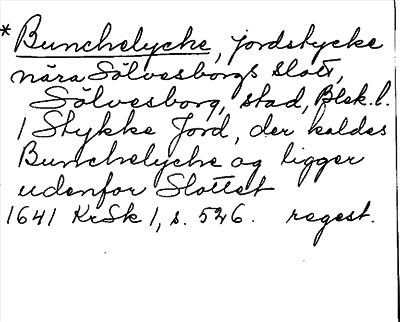 * Bunchelycke, jordstycke
nära Sölvesborgs slott,
Sölvesborg, stad, Blek. l.
1 Stykke Jord, der kaldes
Bunchelyche og ligger
udenfor Slottet
1641 KrSk 1, s. 526. regest.